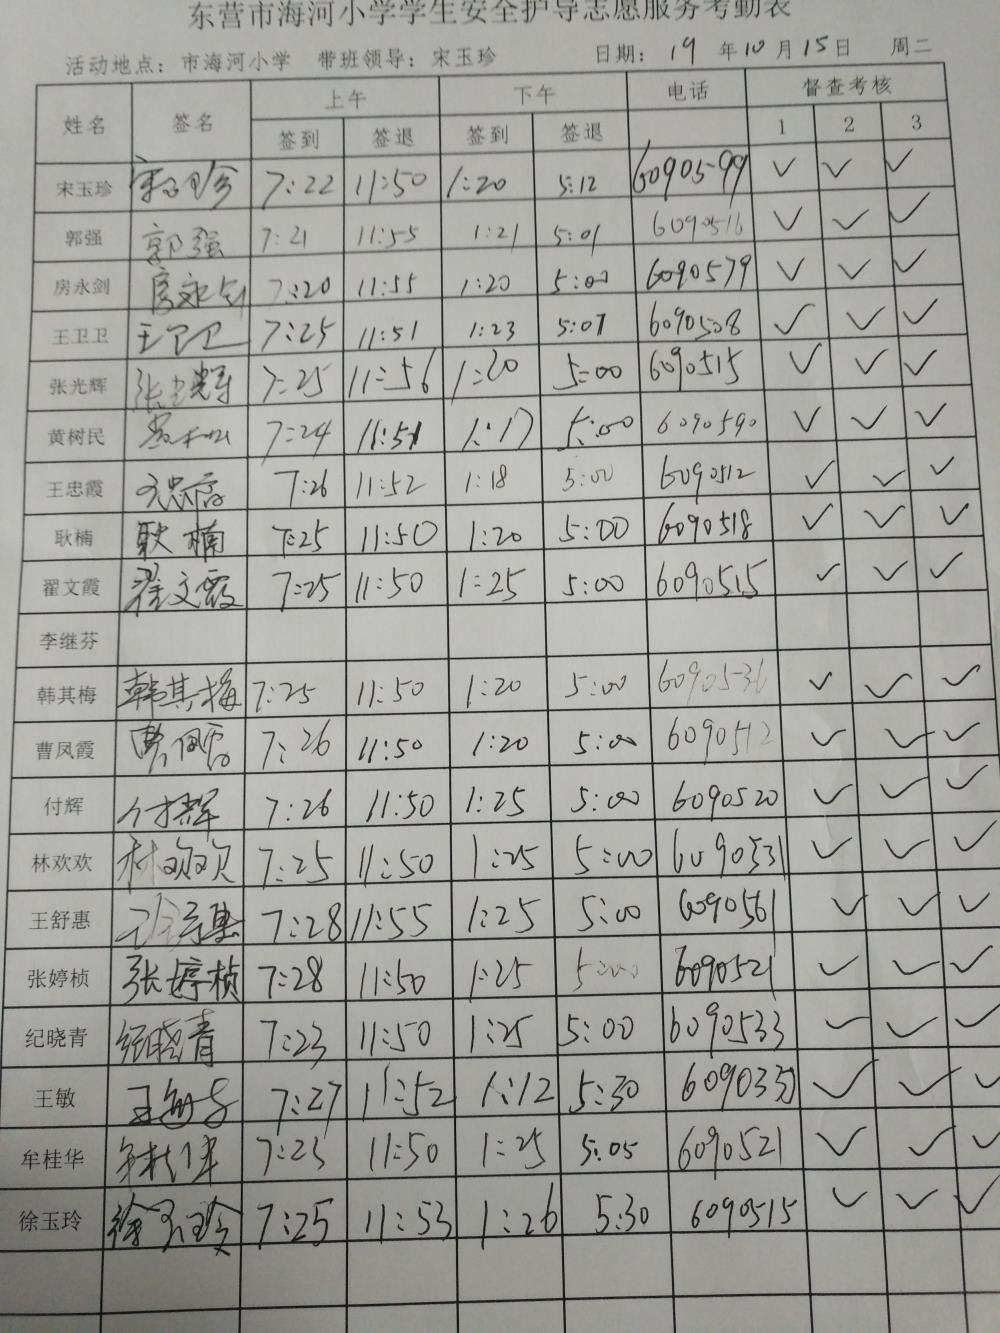 东营市海河小学学生安全护导志愿服务考勤表
活动地点：市海河小学 带班领导：宋玉珍 日期：19 年10 月15日 周二
姓名 签名 上午 下午 电话 督查考核
签到 签退 签到 签退 1 2 3
宋玉珍 宋玉珍 7:22 11:50 1:20 5:12 6090599 ✓ ✓ ✓
郭强 郭强 7:21 11:55 1:21 5:01 6090516 ✓ ✓ ✓
房永剑 房永剑 7:20 11:55 1:20 5:00 6090579 ✓ ✓ ✓
王卫卫 王卫卫 7:25 11:51 1:23 5:07 6090508 ✓ ✓ ✓
张光辉 张光辉 7:25 11:56 1:20 5:00 6090515 ✓ ✓ ✓
黄树民 7:24 11:51 1:17 5:00 6090590 ✓ ✓ ✓
王忠霞 王忠霞 7:26 11:52 1:18 5:00 6090512 ✓ ✓ ✓
耿楠 耿楠 7:25 11:50 1:20 5:00 6090518 ✓ ✓ ✓
翟文霞 翟文霞 7:25 11:50 1:25 5:00 6090515 ✓ ✓ ✓
李继芬
韩其梅 韩其梅 7:25 11:50 1:20 5:00 6090536 ✓ ✓ ✓
曹凤霞 曹凤霞 7:26 11:50 1:20 5:00 6090512 ✓ ✓ ✓
付辉 付辉 7:26 11:50 1:25 5:00 6090520 ✓ ✓ ✓
林欢欢 林欢欢 7:25 11:50 1:25 5:00 6090531 ✓ ✓ ✓
王舒惠 王舒惠 7:28 11:55 1:25 5:00 6090561 ✓ ✓ ✓
张婷桢 张婷桢 7:28 11:50 1:25 5:00 6090521 ✓ ✓ ✓
纪晓青 纪晓青 7:23 11:50 1:25 5:00 6090533 ✓ ✓ ✓
王敏 7:27 11:52 1:12 5:30 ✓ ✓ ✓
牟桂华 牟桂华 7:25 11:50 1:25 5:05 6090521 ✓ ✓ ✓
徐玉玲 徐玉玲 7:25 11:53 1:26 5:30 6090515 ✓ ✓ ✓